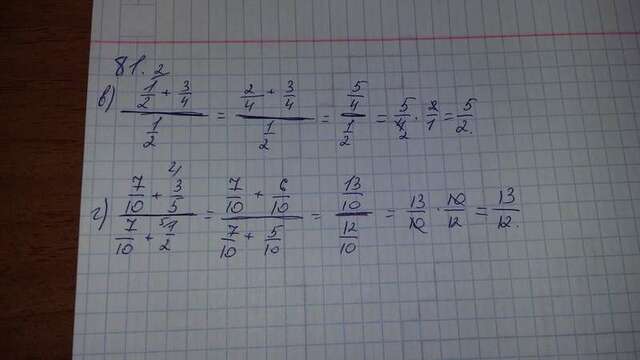 81.
в) (1/2 + 3/4)/(1/2) = (2/4 + 3/4)/(1/2) = (5/4)/(1/2) = 5/4 · 2/1 = 5/2.
г) (7/10 + 3/5)/(7/10 + 1/2) = (7/10 + 6/10)/(7/10 + 5/10) = (13/10)/(12/10) = 13/10 · 10/12 = 13/12.